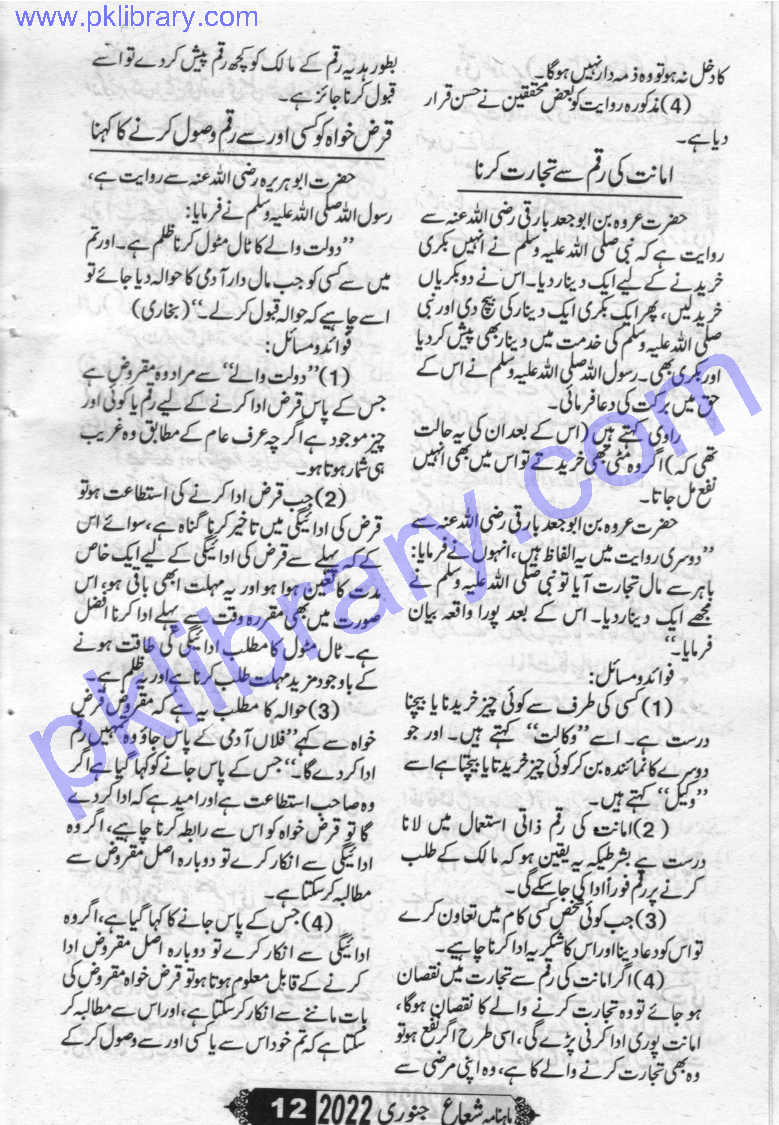 www.pklibrary.com
کا دخل نہ ہو تو وہ ذمہ دار نہیں ہوگا۔
(4) مذکورہ روایت کو بعض محققین نے حسن قرار
دیا ہے۔
امانت کی رقم سے تجارت کرنا
حضرت عروہ بن ابو جعد بارقی رضی اللہ عنہ سے
روایت ہے کہ نبی صلی اللہ علیہ وسلم نے انہیں بکری
خریدنے کے لیے ایک دینار دیا۔ اس نے دو بکریاں
خرید لیں، پھر ایک بکری ایک دینار کی بیچ دی اور نبی
صلی اللہ علیہ وسلم کی خدمت میں دینار بھی پیش کر دیا
اور بکری بھی۔ رسول اللہ صلی اللہ علیہ وسلم نے اس کے
حق میں برکت کی دعا فرمائی۔
راوی کہتے ہیں (اس کے بعد ان کی یہ حالت
تھی کہ) اگر وہ مٹی بھی خریدتے تو اس میں بھی انہیں
نفع مل جاتا۔
حضرت عروہ بن ابو جعد بارقی رضی اللہ عنہ سے
”دوسری روایت میں یہ الفاظ ہیں، انہوں نے فرمایا:
باہر سے مال تجارت آیا تو نبی صلی اللہ علیہ وسلم نے
مجھے ایک دینار دیا۔ اس کے بعد پورا واقعہ بیان
فرمایا۔“
فوائد و مسائل:
(1) کسی کی طرف سے کوئی چیز خریدنا یا بیچنا
درست ہے۔ اسے ”وکالت“ کہتے ہیں۔ اور جو
دوسرے کا نمائندہ بن کر کوئی چیز خریدتا یا بیچتا ہے اسے
”وکیل“ کہتے ہیں۔
(2) امانت کی رقم ذاتی استعمال میں لانا
درست ہے بشرطیکہ یہ یقین ہو کہ مالک کے طلب
کرنے پر رقم فوراً ادا کی جا سکے گی۔
(3) جب کوئی شخص کسی کام میں تعاون کرے
تو اس کو دعا دینا اور اس کا شکریہ ادا کرنا چاہیے۔
(4) اگر امانت کی رقم سے تجارت میں نقصان
ہو جائے تو وہ تجارت کرنے والے کا نقصان ہوگا،
امانت پوری ادا کرنی پڑے گی، اسی طرح اگر نفع ہو تو
وہ بھی تجارت کرنے والے کا ہے، وہ اپنی مرضی سے
بطور ہدیہ رقم کے مالک کو کچھ رقم پیش کر دے تو اسے
قبول کرنا جائز ہے۔
قرض خواہ کو کسی اور سے رقم وصول کرنے کا کہنا
حضرت ابو ہریرہ رضی اللہ عنہ سے روایت ہے،
رسول اللہ صلی اللہ علیہ وسلم نے فرمایا:
”دولت والے کا ٹال مٹول کرنا ظلم ہے۔ اور تم
میں سے کسی کو جب مال دار آدمی کا حوالہ دیا جائے تو
اسے چاہیے کہ حوالہ قبول کر لے۔“ (بخاری)
فوائد و مسائل:
(1) ”دولت والے“ سے مراد وہ مقروض ہے
جس کے پاس قرض ادا کرنے کے لیے رقم یا کوئی اور
چیز موجود ہے اگرچہ عرف عام کے مطابق وہ غریب
ہی شمار ہوتا ہو۔
(2) جب قرض ادا کرنے کی استطاعت ہو تو
قرض کی ادائیگی میں تاخیر کرنا گناہ ہے، سوائے اس
کے کہ پہلے سے قرض کی ادائیگی کے لیے ایک خاص
مدت کا تعین ہوا ہو اور یہ مہلت ابھی باقی ہو، اس
صورت میں بھی مقررہ وقت سے پہلے ادا کرنا افضل
ہے۔ ٹال مٹول کا مطلب ادائیگی کی طاقت ہونے
کے باوجود مزید مہلت طلب کرنا ہے اور یہ ظلم ہے۔
(3) حوالہ کا مطلب یہ ہے کہ مقروض قرض
خواہ سے کہے ”فلاں آدمی کے پاس جاؤ وہ تمہیں رقم
ادا کر دے گا۔“ جس کے پاس جانے کو کہا گیا ہے اگر
وہ صاحب استطاعت ہے اور امید ہے کہ ادا کر دے
گا تو قرض خواہ کو اس سے رابطہ کرنا چاہیے، اگر وہ
ادائیگی سے انکار کرے تو دوبارہ اصل مقروض سے
مطالبہ کر سکتا ہے۔
(4) جس کے پاس جانے کا کہا گیا ہے، اگر وہ
ادائیگی سے انکار کرے تو دوبارہ اصل مقروض ادا
کرنے کے قابل معلوم ہوتا ہو تو قرض خواہ مقروض کی
بات ماننے سے انکار کر سکتا ہے، اور اس سے مطالبہ کر
سکتا ہے کہ تم خود اس سے یا کسی اور سے وصول کر کے
pklibrary.com
ماہنامہ شعاع جنوری 2022 12